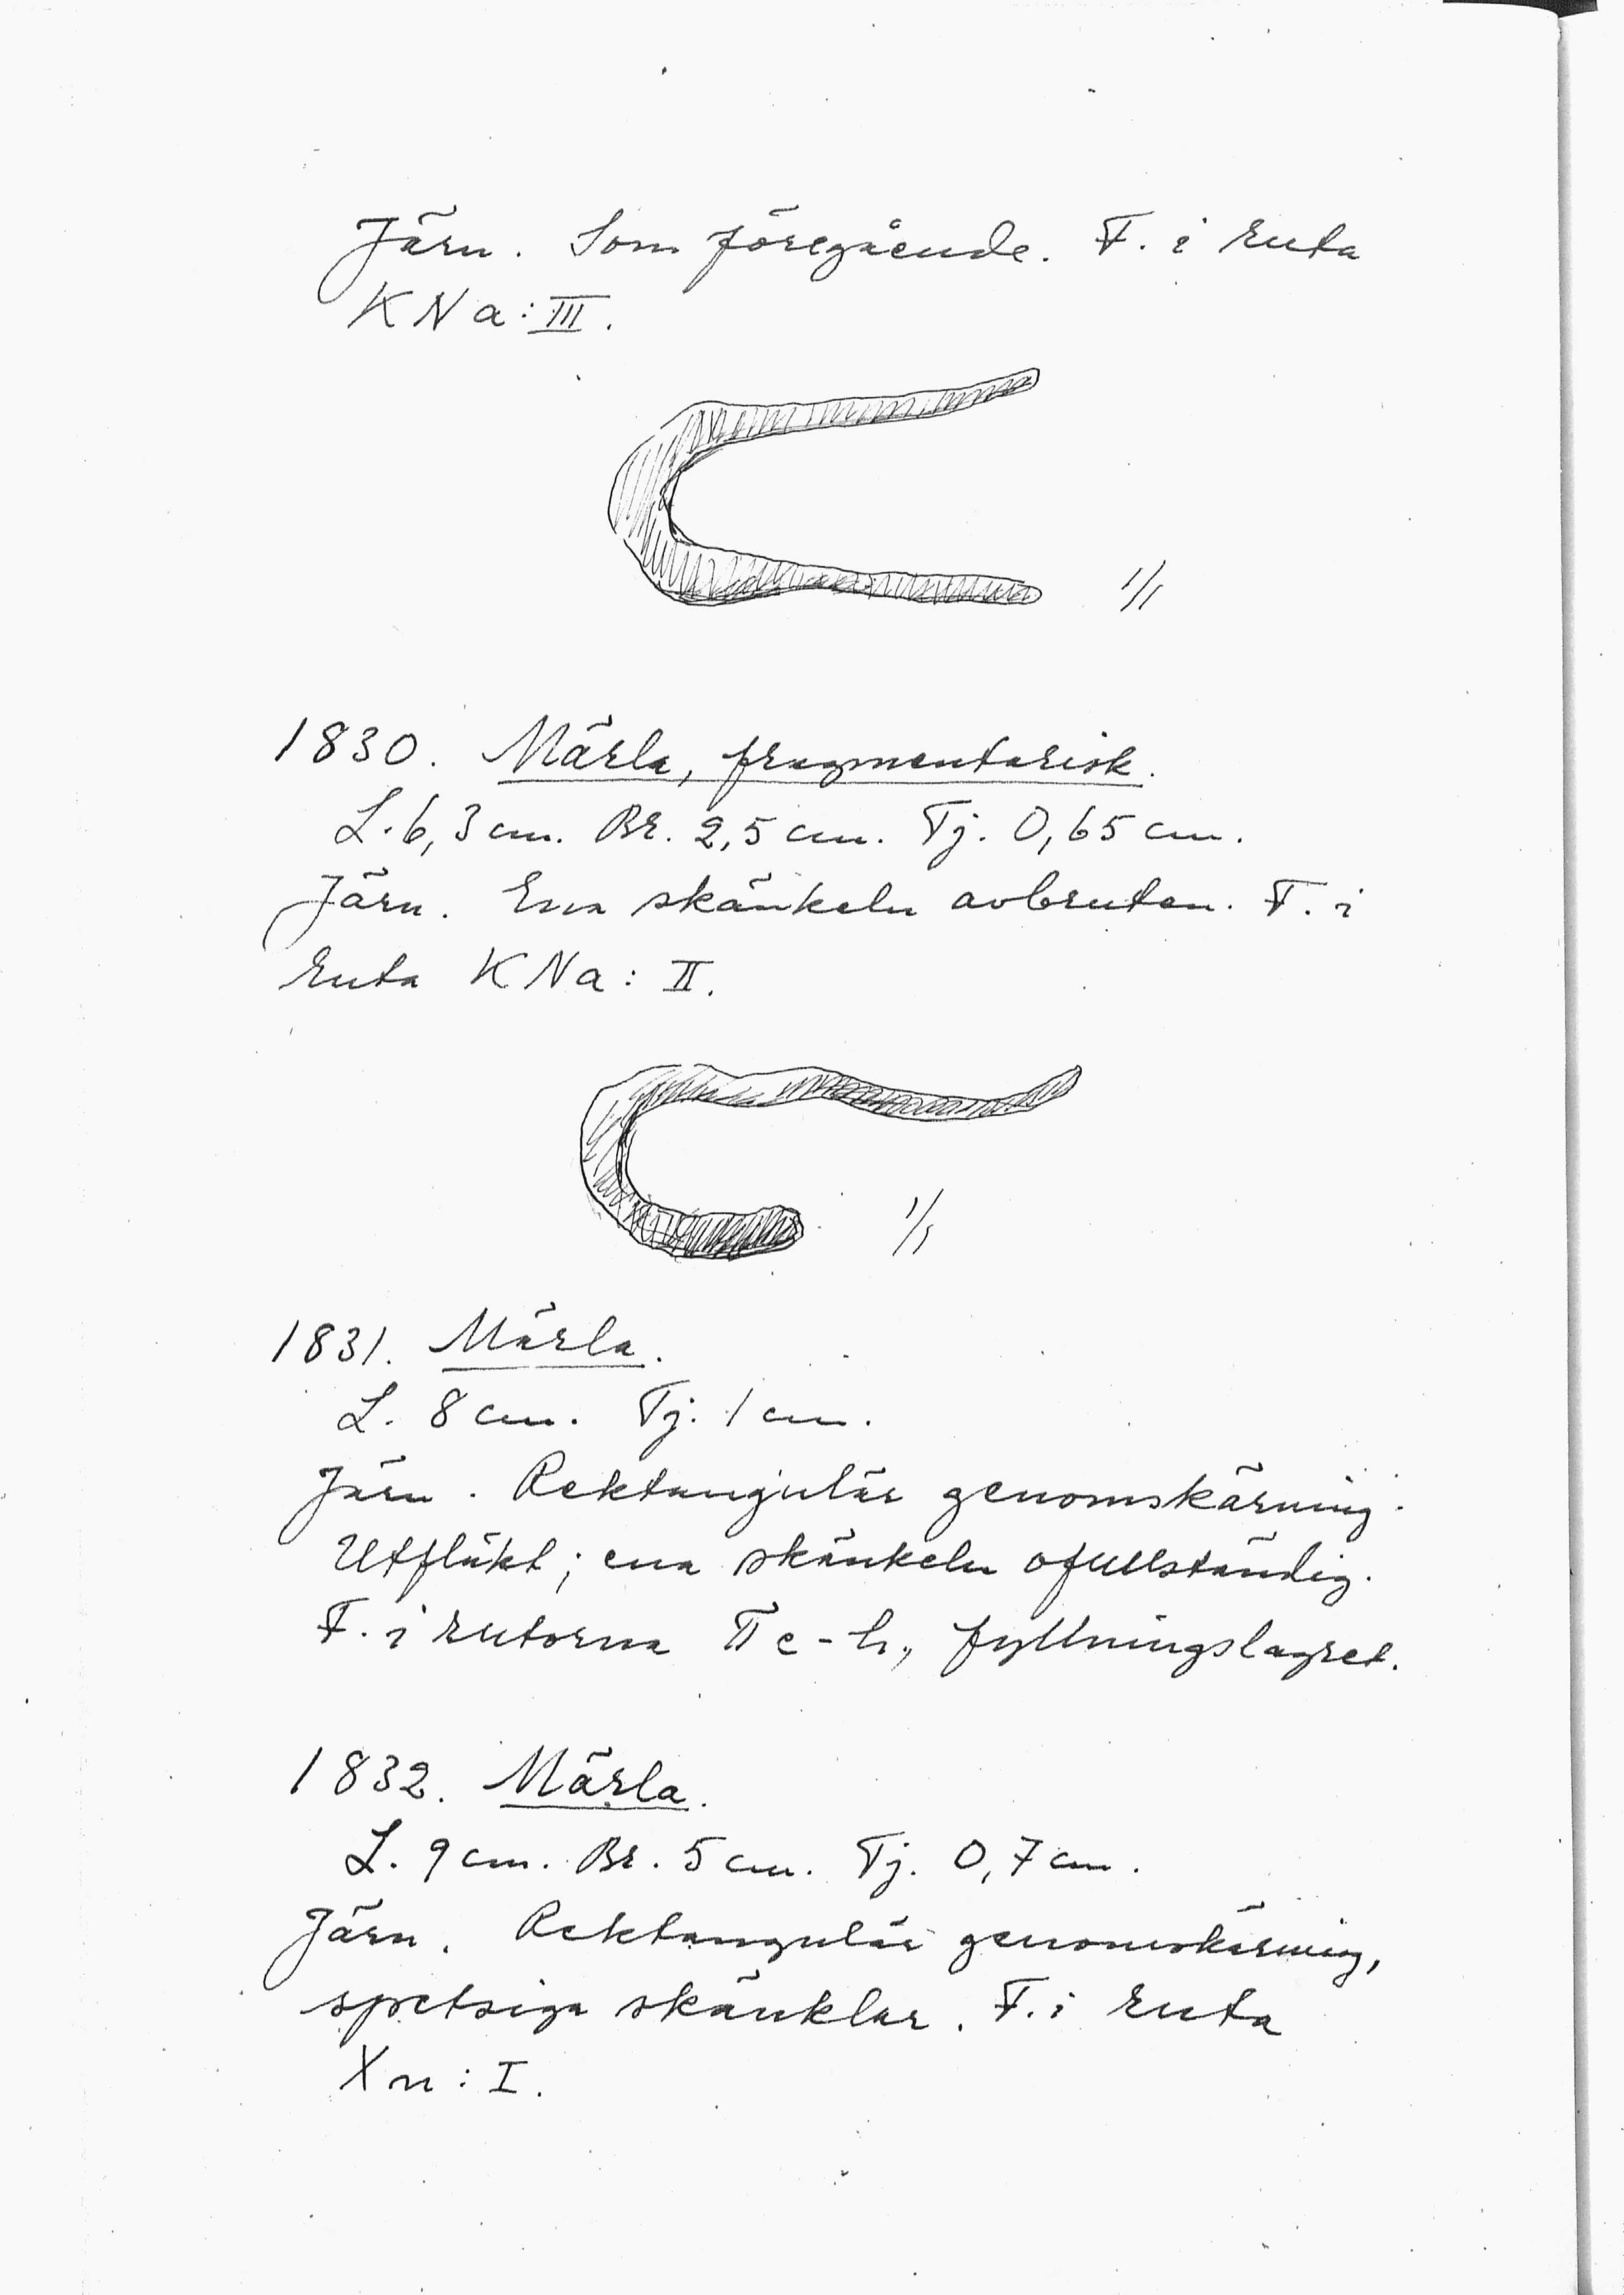 Järn. Som föregående. F. i ruta
KNa: III.
1/1
1830. Märla, fragmentarisk.
L. 6,3 cm. Br. 2,5 cm. Tj. 0,65 cm.
Järn. Ena skänkeln avbruten. F. i
ruta KNa: II.
1/1
1831. Märla.
L. 8 cm. Tj. 1 cm.
Järn. Rektangulär genomskärning.
Utfläkt; ena skänkeln ofullständig.
F. i rutorna II e-h, fyllningslagret.
1832. Märla.
L. 9 cm. Br. 5 cm. Tj. 0,7 cm.
Järn. Rektangulär genomskärning,
spetsiga skänklar. F. i ruta
Xn: I.